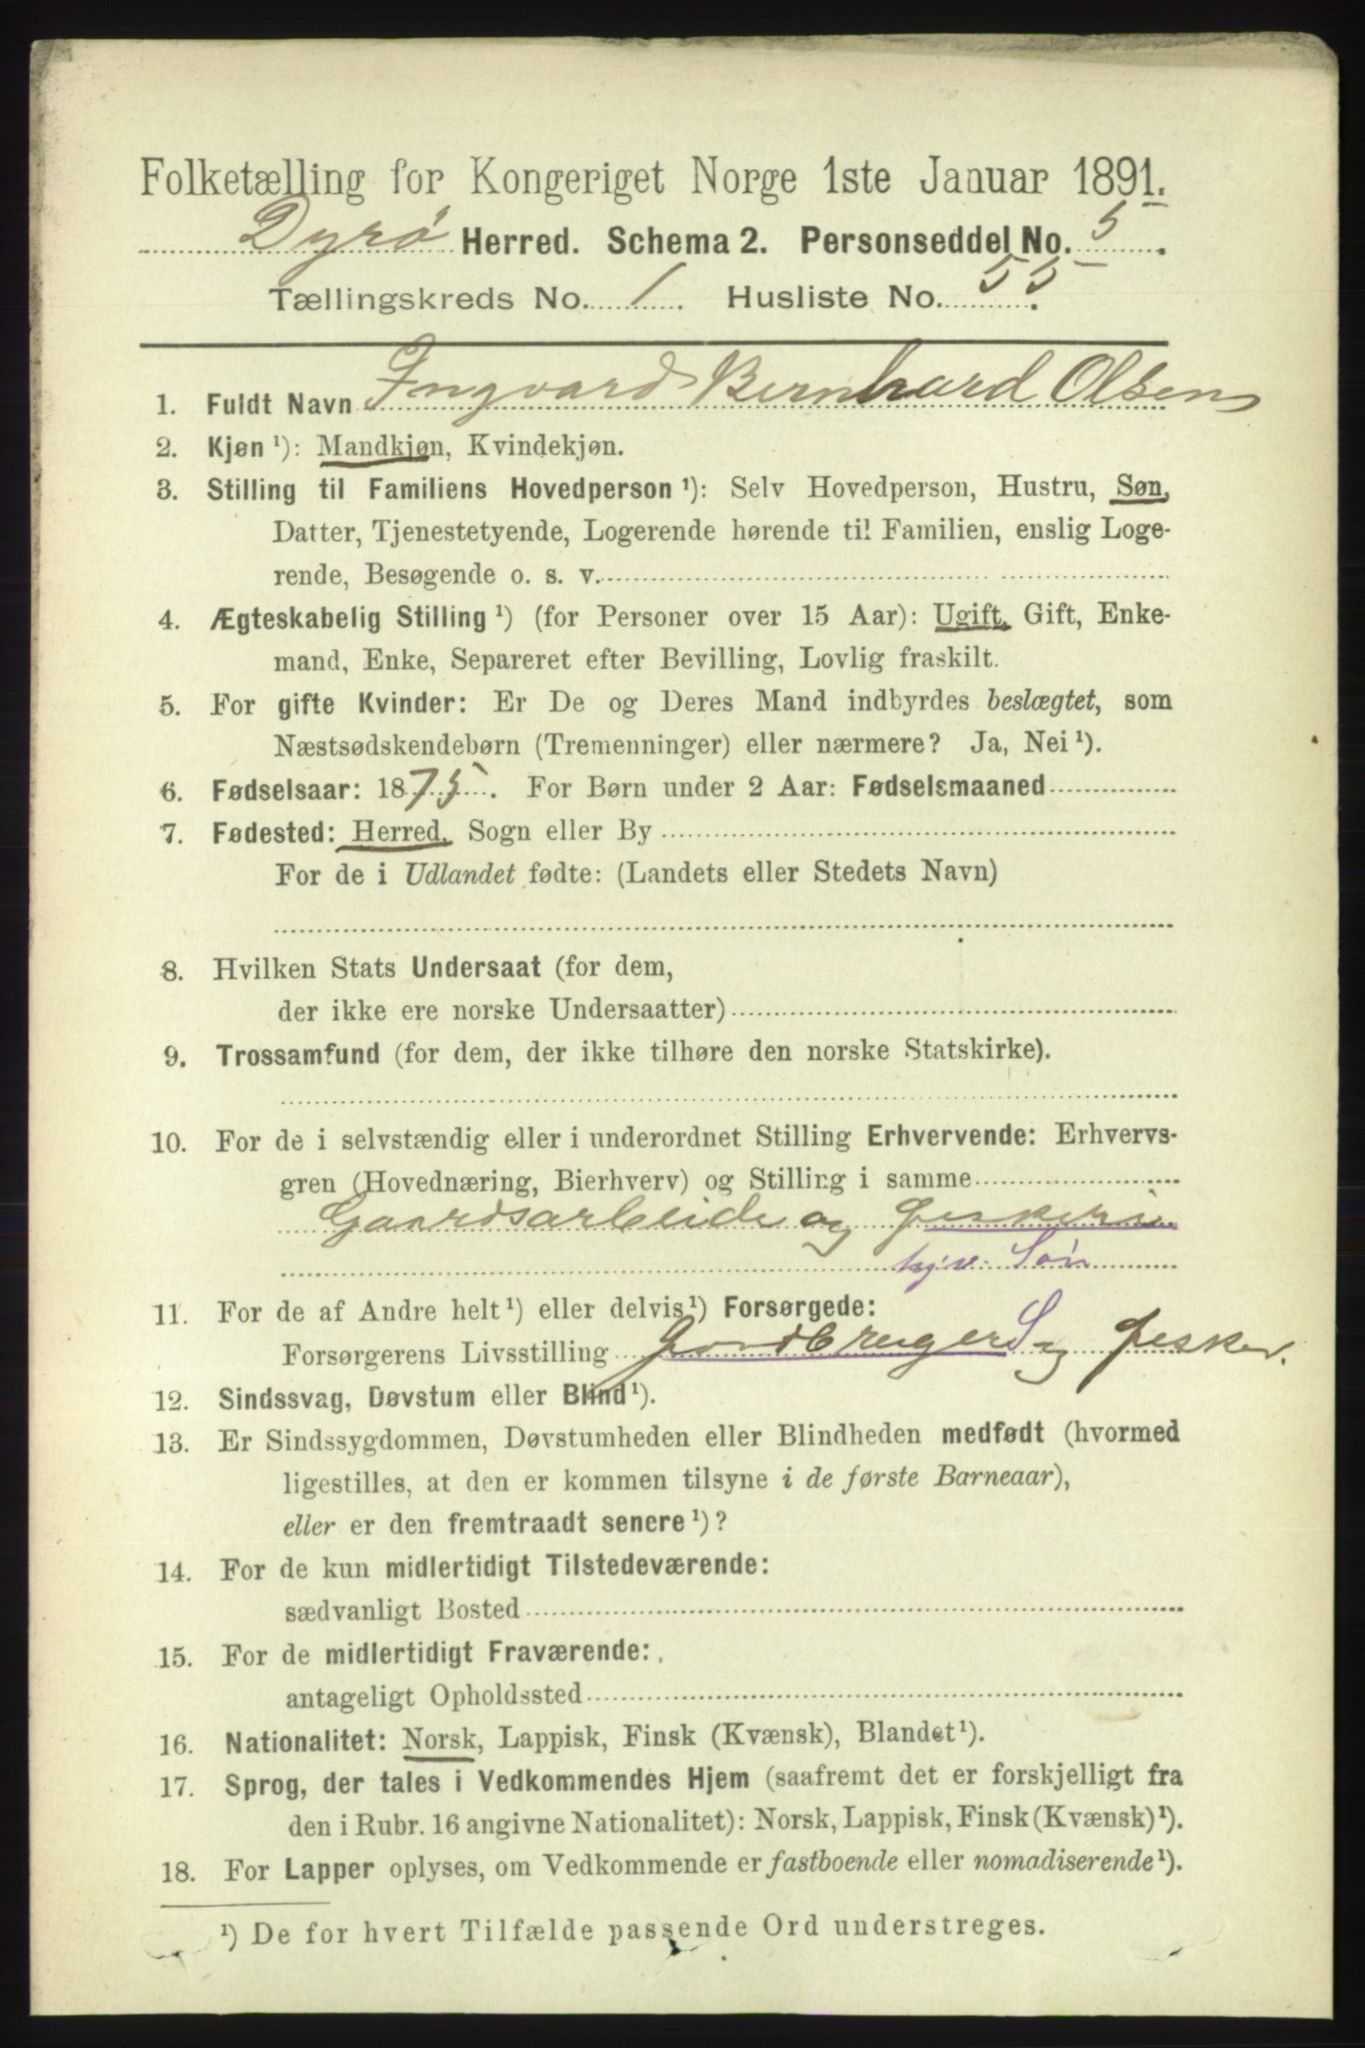 Folketælling for Kongeriget Norge 1ste Januar 1891.
Dyrø Herred. Schema 2. Personseddel No. 5.
Tællingskreds No. 1. Husliste No. 55.
1. Fuldt Navn Ingvard Bernhard Olsen
2. Kjøn ¹): Mandkjøn, Kvindekjøn.
3. Stilling til Familiens Hovedperson ¹): Selv Hovedperson, Hustru, Søn,
Datter, Tjenestetyende, Logerende hørende til Familien, enslig Loge-
rende, Besøgende o. s. v.
4. Ægteskabelig Stilling ¹) (for Personer over 15 Aar): Ugift, Gift, Enke-
mand, Enke, Separeret efter Bevilling, Lovlig fraskilt.
5. For gifte Kvinder: Er De og Deres Mand indbyrdes beslægtet, som
Næstsødskendebørn (Tremenninger) eller nærmere? Ja, Nei ¹).
6. Fødselsaar: 1875. For Børn under 2 Aar: Fødselsmaaned
7. Fødested: Herred, Sogn eller By
For de i Udlandet fødte: (Landets eller Stedets Navn)
8. Hvilken Stats Undersaat (for dem,
der ikke ere norske Undersaatter)
9. Trossamfund (for dem, der ikke tilhøre den norske Statskirke).
10. For de i selvstændig eller i underordnet Stilling Erhvervende: Erhvervs-
gren (Hovednæring, Bierhverv) og Stilling i samme
Gaardsarbeide og Fiskeri
hjv. Søn
11. For de af Andre helt ¹) eller delvis ¹) Forsørgede:
Forsørgerens Livsstilling Gaardbruger S og Fisker.
12. Sindssvag, Døvstum eller Blind ¹).
13. Er Sindssygdommen, Døvstumheden eller Blindheden medfødt (hvormed
ligestilles, at den er kommen tilsyne i de første Barneaar),
eller er den fremtraadt senere ¹)?
14. For de kun midlertidigt Tilstedeværende:
sædvanligt Bosted
15. For de midlertidigt Fraværende:
antageligt Opholdssted
16. Nationalitet: Norsk, Lappisk, Finsk (Kvænsk), Blandet ¹).
17. Sprog, der tales i Vedkommendes Hjem (saafremt det er forskjelligt fra
den i Rubr. 16 angivne Nationalitet): Norsk, Lappisk, Finsk (Kvænsk) ¹).
18. For Lapper oplyses, om Vedkommende er fastboende eller nomadiserende ¹).
¹) De for hvert Tilfælde passende Ord understreges.